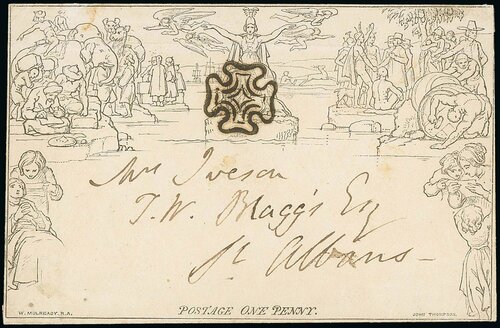 Mrs Iveson
T. W. Blagg's Esq
St Albans
POSTAGE ONE PENNY.
W. MULREADY. R.A.
JOHN THOMPSON.